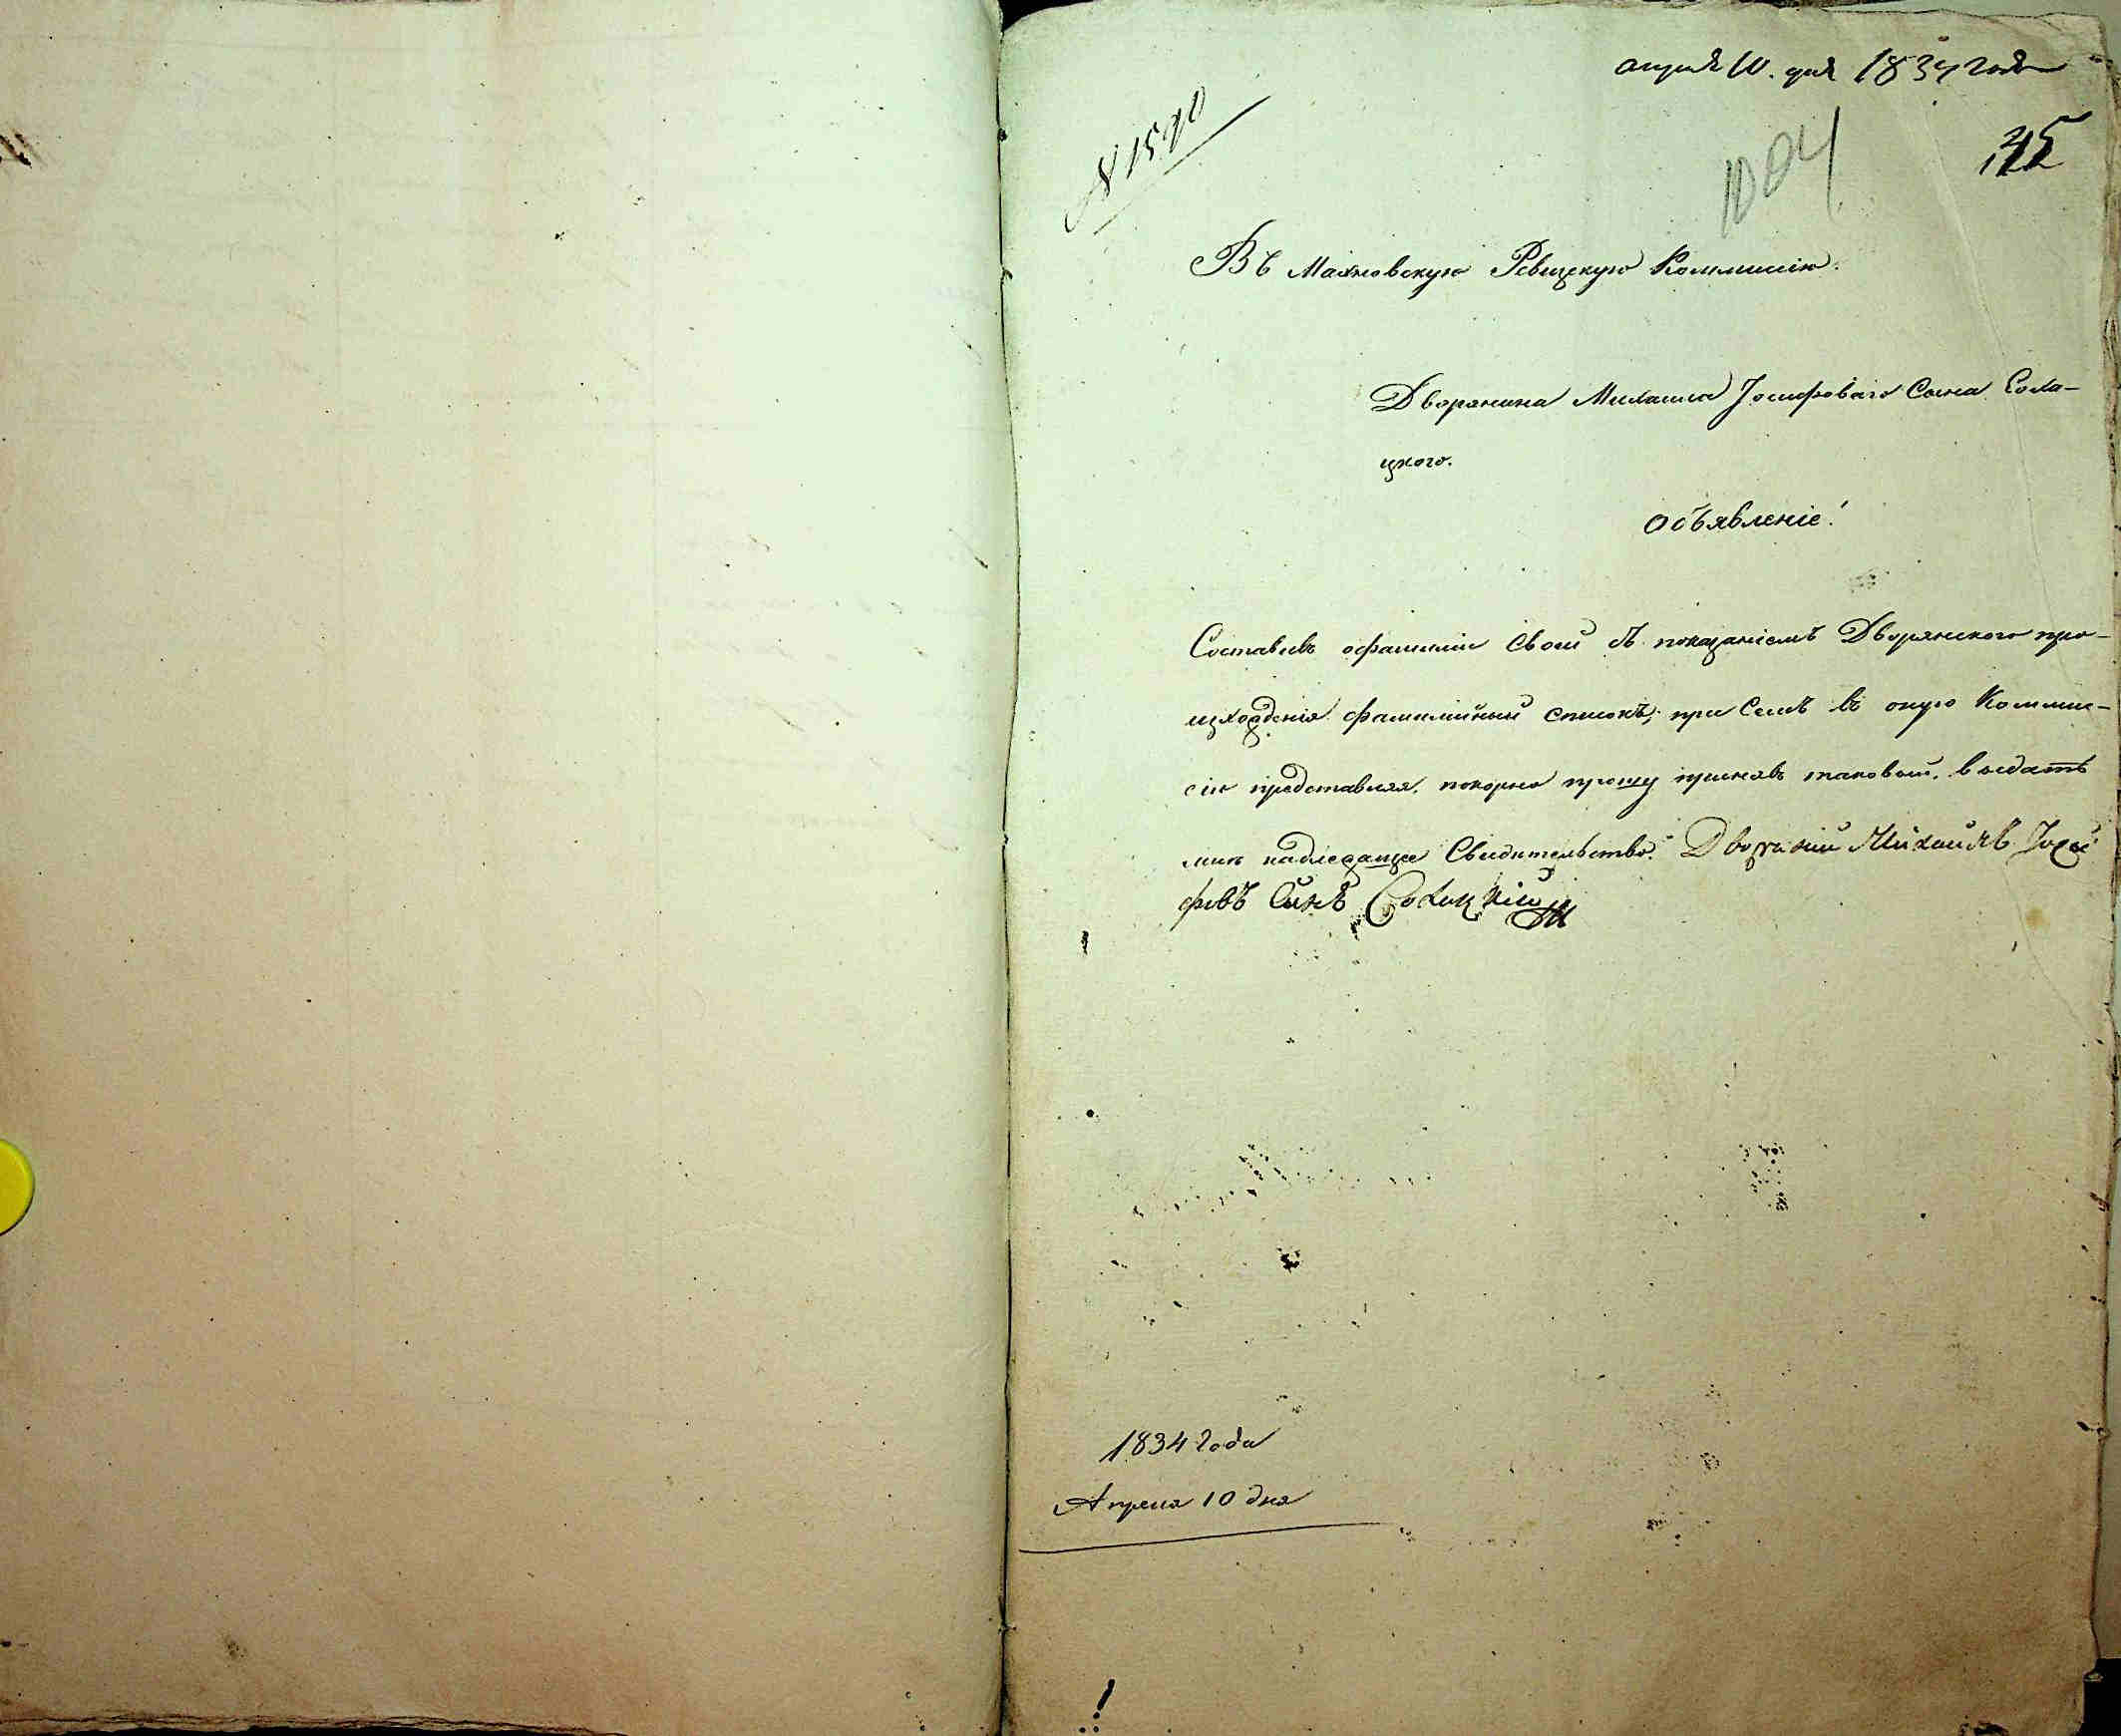 апреля 10. дня 1834 года
№ 1590
1004
Въ Махновскую Ревизскую Коммисію.
Дворянина Михаила Іосифоваго Сына Сола-
цкого.
Объявленіе!
Составивъ офамиліи своей съ показаніемъ Дворянского про-
изхожденія фамилійный списокъ, при семъ въ оную Коммис-
сію представляя, покорно прошу принявъ таковый, выдать
мнѣ надлежащее Свидительство.
фовъ Сынъ
1834 года
Апреля 10 дня